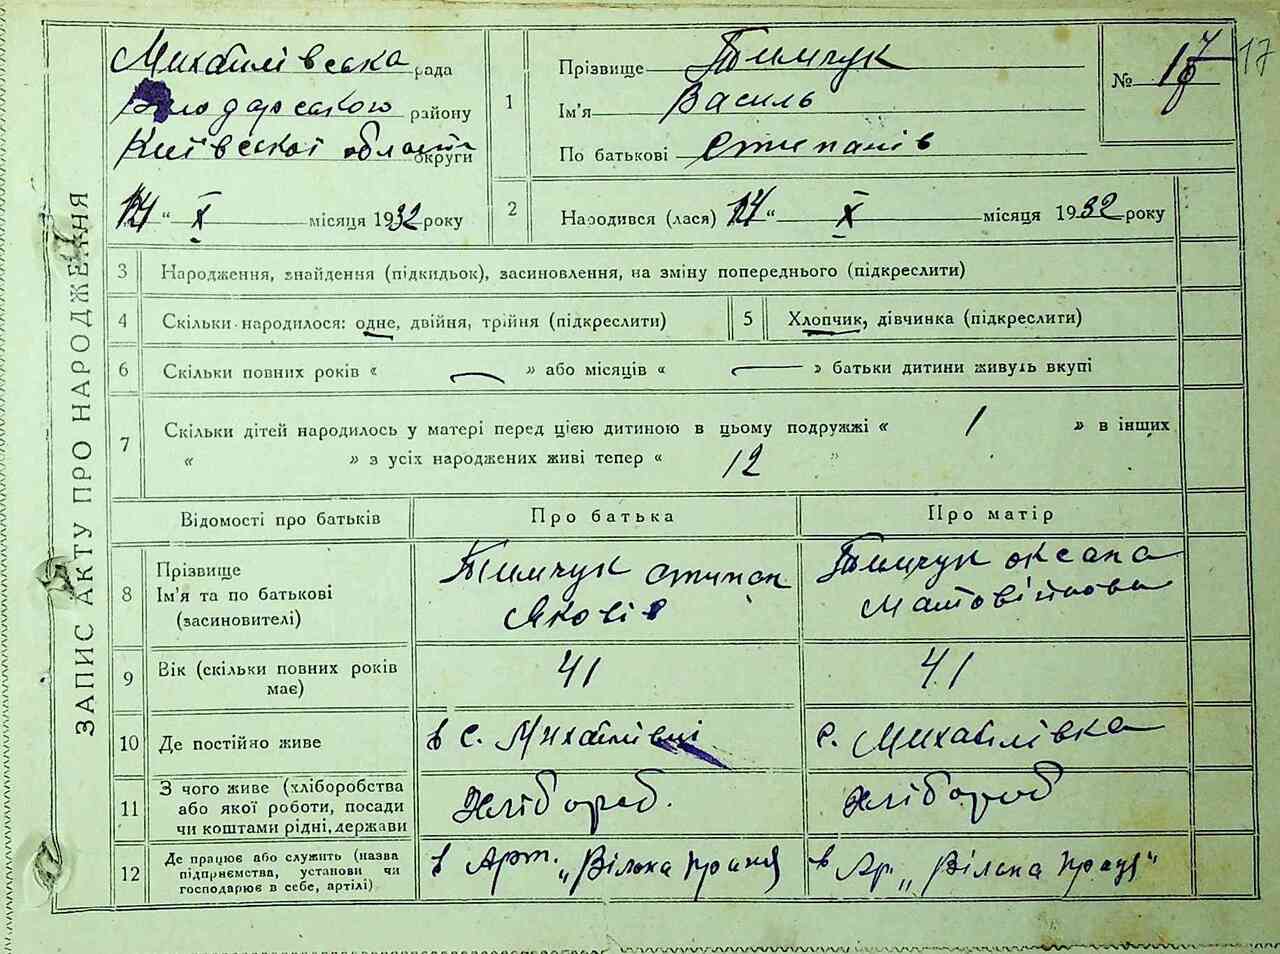 ЗАПИС АКТУ ПРО НАРОДЖЕННЯ
Михайлівська рада
Володарського району
Київської області округи
14 " X місяця 1932 року
1
Прізвище Тимчук
Ім'я Василь
По батькові Степанів
№ 17
17
2
Народився (лася) 14 " X місяця 1932 року
3 Народження, знайдення (підкидьок), засиновлення, на зміну попереднього (підкреслити)
4 Скільки народилося: одне, двійня, трійня (підкреслити)
5 Хлопчик, дівчинка (підкреслити)
6 Скільки повних років « — » або місяців « — » батьки дитини живуть вкупі
7 Скільки дітей народилось у матері перед цією дитиною в цьому подружжі « 1 » в інших
« » з усіх народжених живі тепер « 12 "
Відомості про батьків Про батька Про матір
8
Прізвище
Ім'я та по батькові
(засиновителі)
Тимчук степан
Яковів
Тимчук оксана
Матовійовна
9 Вік (скільки повних років
має)
41
41
10 Де постійно живе в с. Михайлівці с. Михайлівка
11
З чого живе (хліборобства
або якої роботи, посади
чи коштами рідні, держави
Хлібороб.
Хлібороб
12
Де працює або служить (назва
підприємства, установи чи
господарює в себе, артілі)
в Арт. „Вільна праця
в Ар. „Вільна Праця"